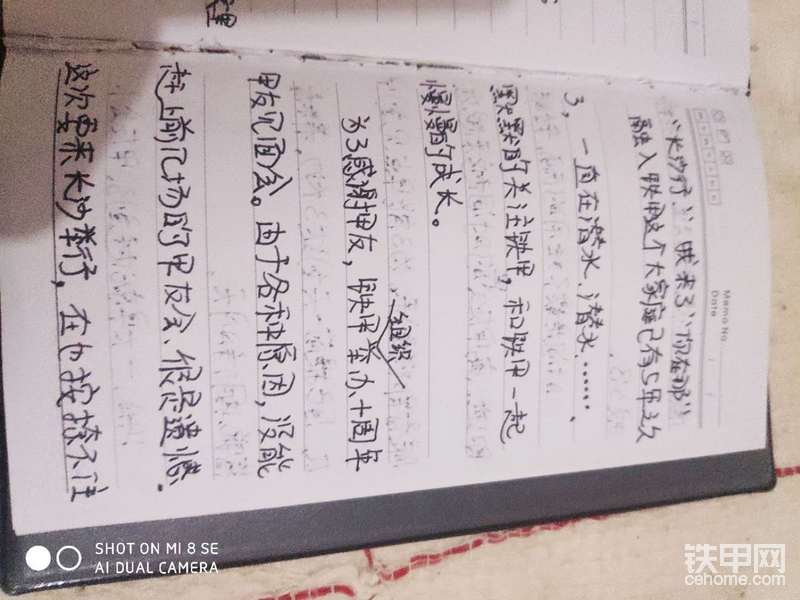 Memo No.
Date
"长沙行"我来了"你在那"
融入铁甲这个大家庭已有5年之久
了，一直在潜水、潜水……、
默默的关注铁甲，和铁甲一起
慢慢的成长。
组织
为了感谢甲友，铁甲举办十周年
甲友见面会。由于各种原因，没能
赶上前几场的甲友会、很是遗憾。
这次要来长沙举行，在也按捺不住
理
SHOT ON MI 8 SE
AI DUAL CAMERA
铁甲网
cehome.com